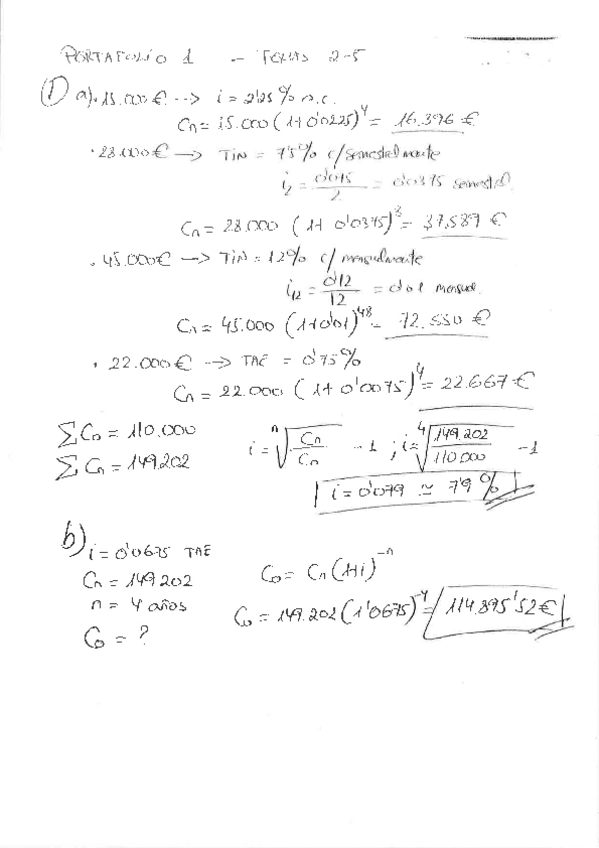 PORTAFOLIO 1 - TEMAS 2-5
① a) · 15.000 € --> i = 2'25 % a.c.
Cn = 15.000 (1+0'0225)^4 = 16.396 €
· 28.000 € --> TIN = 7'5% c/semestralmente
i2 = 0'075/2 = 0'0375 semestral
Cn = 28.000 (1+ 0'0375)^8 = 37.589 €
· 45.000€ --> TIN = 12% c/ mensualmente
i12 = 0'12/12 = 0'01 mensual
Cn = 45.000 (1+0'01)^48 = 72.550 €
· 22.000 € --> TAE = 0'75%
Cn = 22.000 (1+ 0'0075)^4 = 22.667 €
∑ Co = 110.000
∑ Cn = 149.202
i = n√(Cn/Cn) - 1 ; i = 4√(149.202/110.000) - 1
i = 0'079 ≃ 7'9 %
b) i = 0'0675 TAE
Cn = 149.202
n = 4 años
Co = ?
Co = Cn (1+i)^-n
Co = 149.202 (1'0675)^-4 = 114.895'52 €